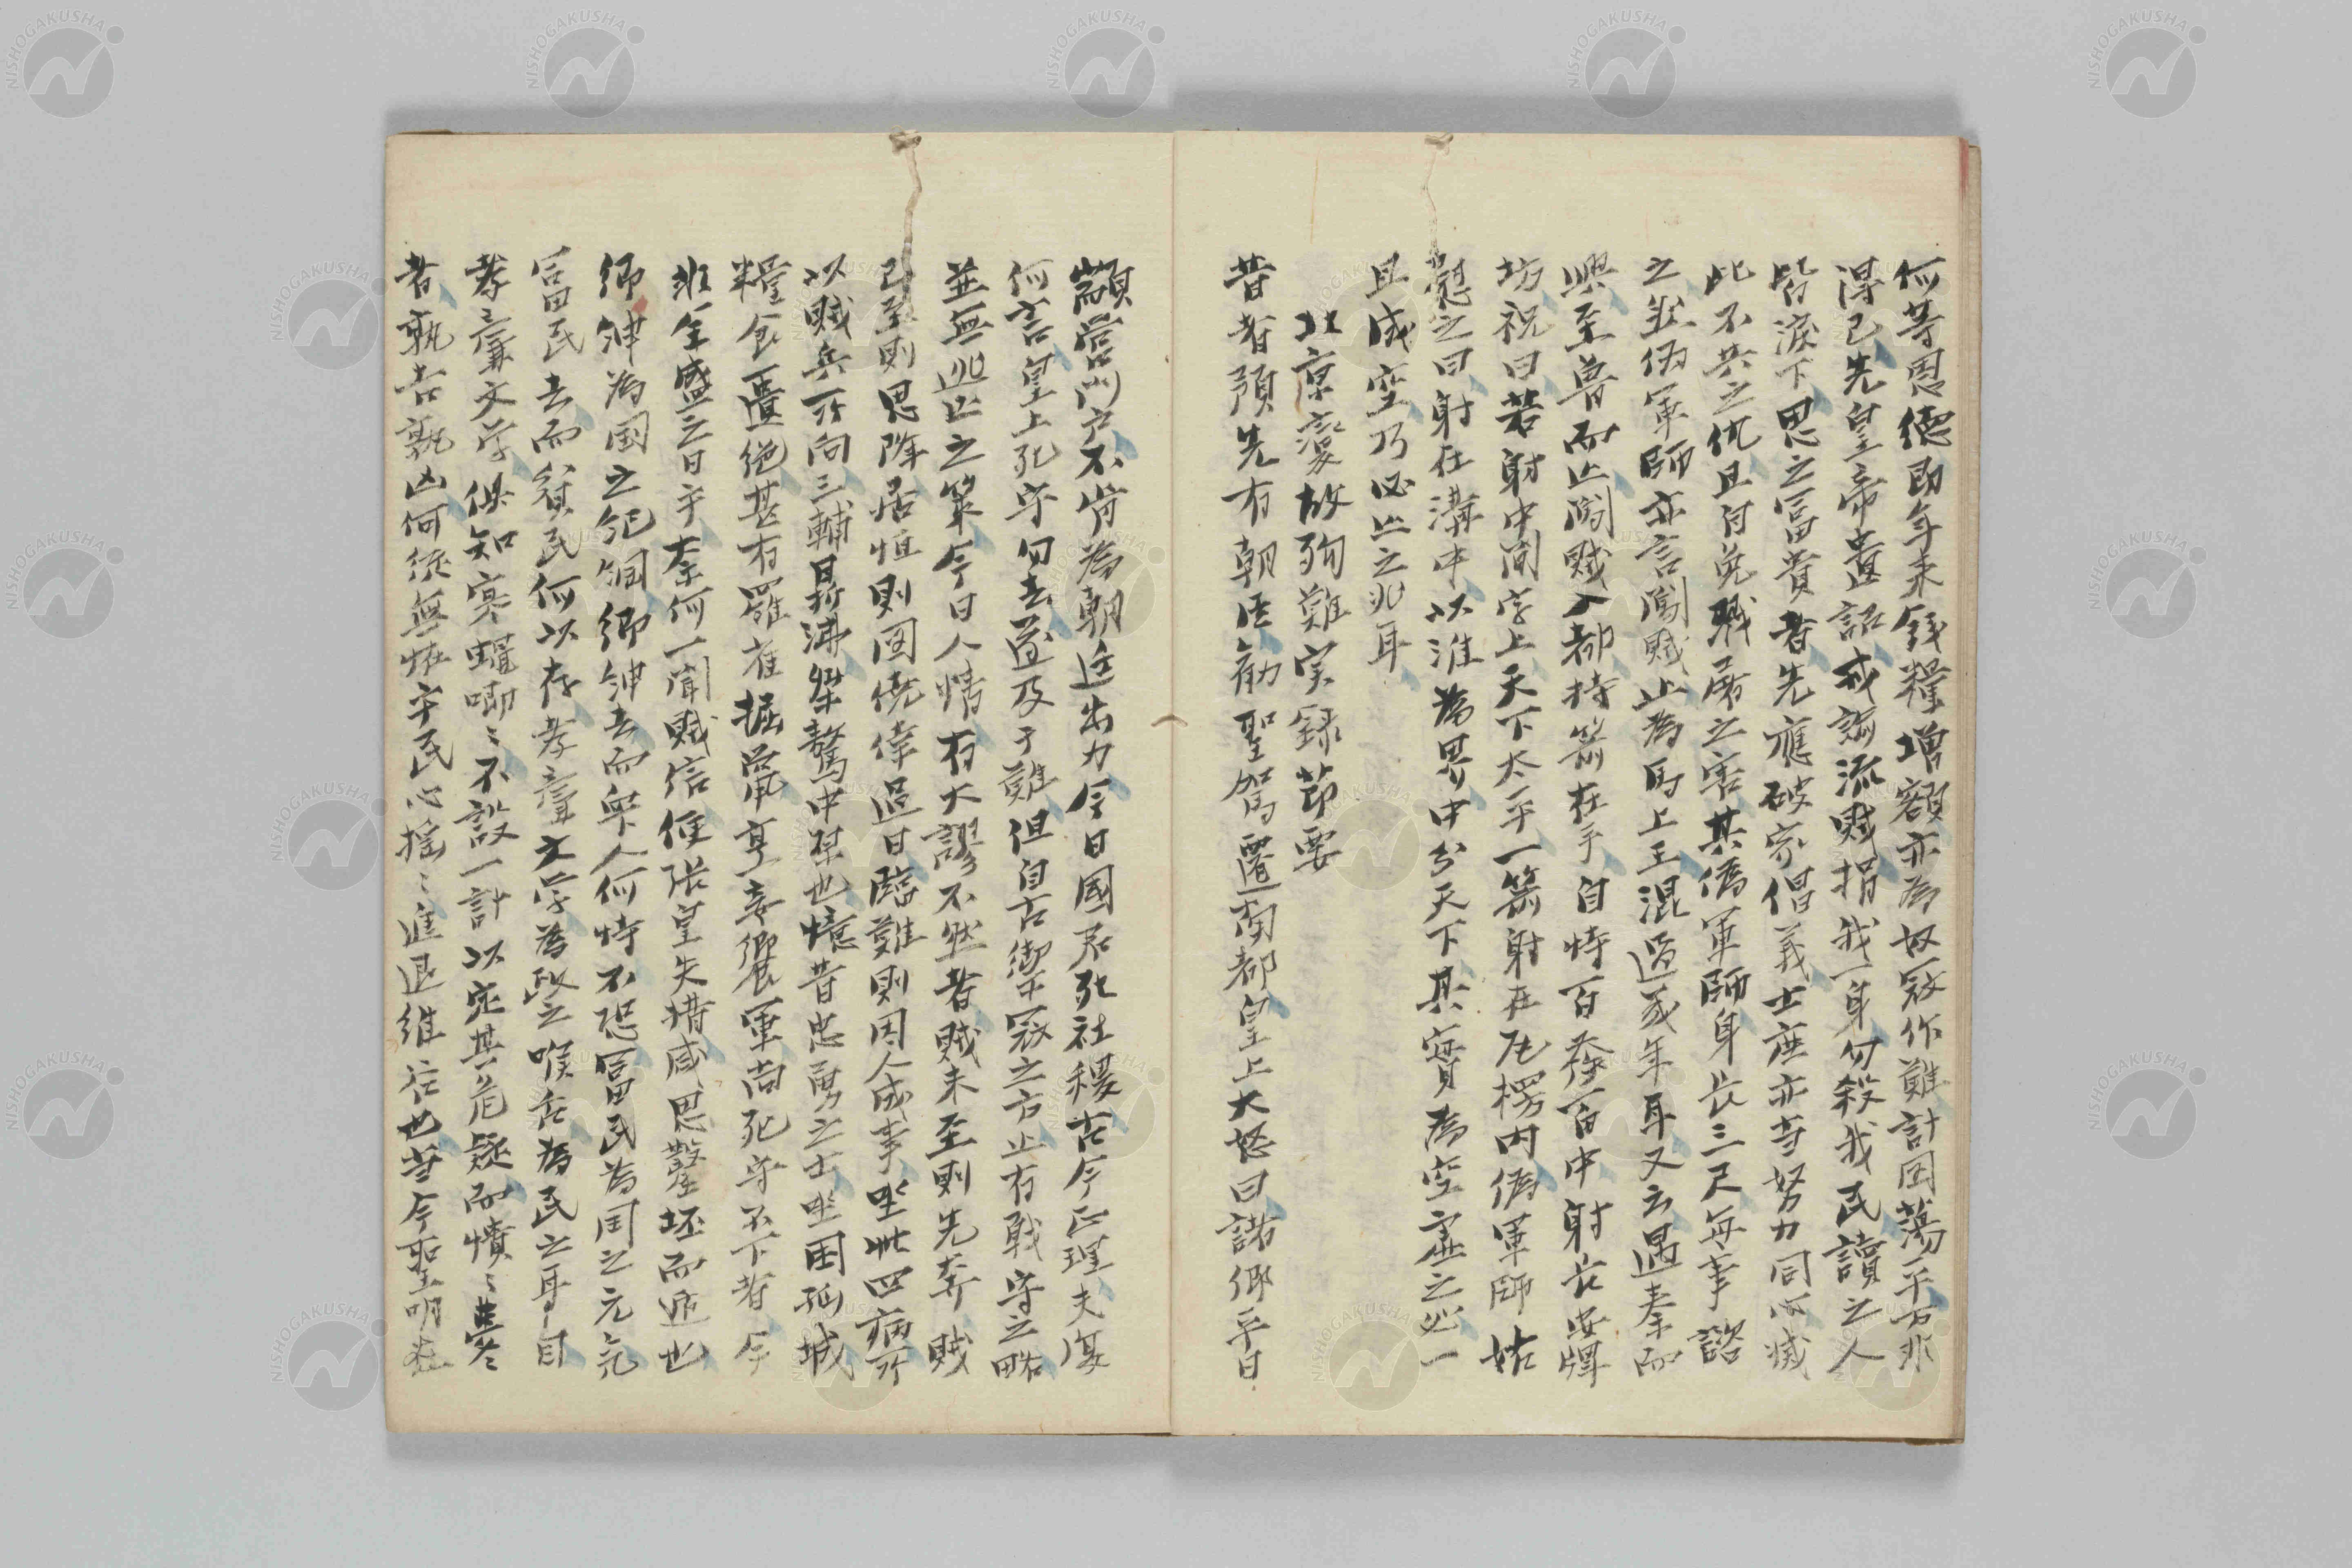 何等恩德即年来錢糧增額亦為奴寇作難計因蕩平方非
得已先皇帝遺詔戒諭流賊捐我一身勿殺我民讀之人
皆淚下思之冨貴者先應破家倡義士庶亦当努力同心滅
此不共之仇且自免賊屠之害其偽軍師身長三尺每事諮
之然偽軍師亦言闖賊止為馬上王混過幾年耳又云遇秦而
興至魯而止闖賊入都持箭在手自恃百發百中射長安牌
坊祝曰若射中間字上天下太平一箭射在瓦楞内偽軍師姑
慰之曰射在溝中以淮為界中分天下其實為空虛之必一
且成空乃必亡之兆耳
北京変故殉難実録節要
昔者預先有朝臣勧聖駕遷南都皇上大怒曰諸卿平日
顓営門户不肯為朝廷出力今日國君死社稷古今正理夫復
何言皇上死守勿去遂及于難但自古禦寇之方止有戦守之略
並無逃亡之策今日人情有大謬不然者賊未至則先奔賊
已至則思降居恒則圖僥倖過日臨難則因人成事坐此四病所
以賊兵所向三輔鼎沸桀驁中禁也憶昔忠勇之士坐困孤城
糧食匱絶甚有羅雀掘鼠烹妾饗軍尚死守不下者今
非全盛之日乎奈何一聞賊信倀張皇失措咸思鑿坯而遁也
卿紳為国之紀綱卿紳去而舉人何恃不恐冨民為国之元氣
冨民去而貧民何以存孝廉文学為民之喉舌為民之耳目
孝〻廉文学俱知寒螿唧〻不設一計以定其危疑而憒〻夢〻
者孰吉孰凶何依無恠乎民心揺〻進退維谷也当今聖明在